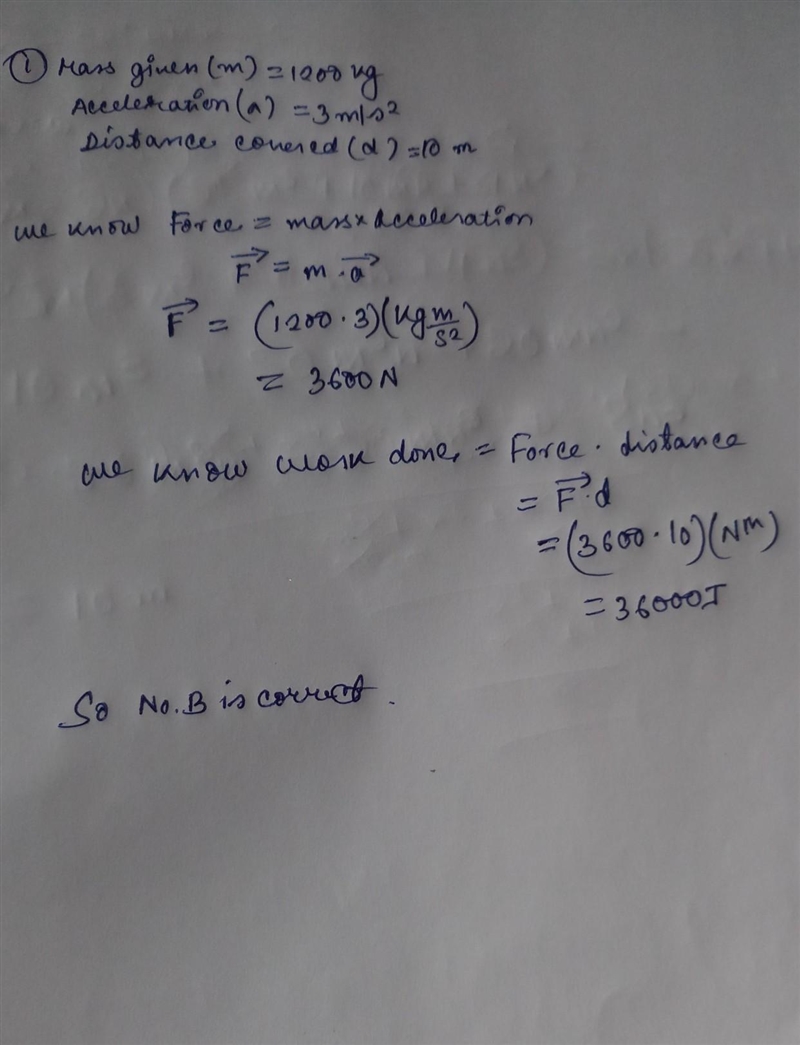 ① Mass given (m) = 1200 kg
Acceleration (a) = 3 m/s²
Distance covered (d) = 10 m
we know Force = mass × Acceleration
F⃗ = m · a⃗
F⃗ = (1200 · 3)(kg m/s²)
= 3600 N
we know work done, = Force · distance
= F⃗ · d
= (3600 · 10)(Nm)
= 36000J
So No. B is correct.